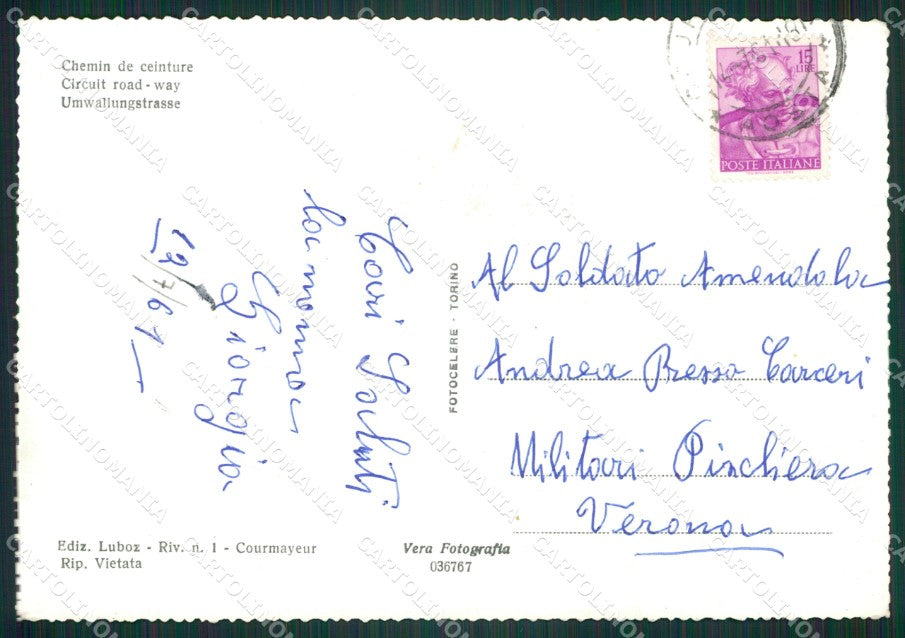 Chemin de ceinture
Circuit road - way
Umwallungstrasse
15
LIRE
POSTE ITALIANE
AOSTA
Cari Saluti
la mamma
Giorgia
12/7/61
FOTOCELERE - TORINO
Al Soldato Amendola
Andrea Presso Carceri
Militari Pinchiera
Verona
Ediz. Luboz - Riv. n. 1 - Courmayeur
Rip. Vietata
Vera Fotografia
036767
CARTOLINOMANIA